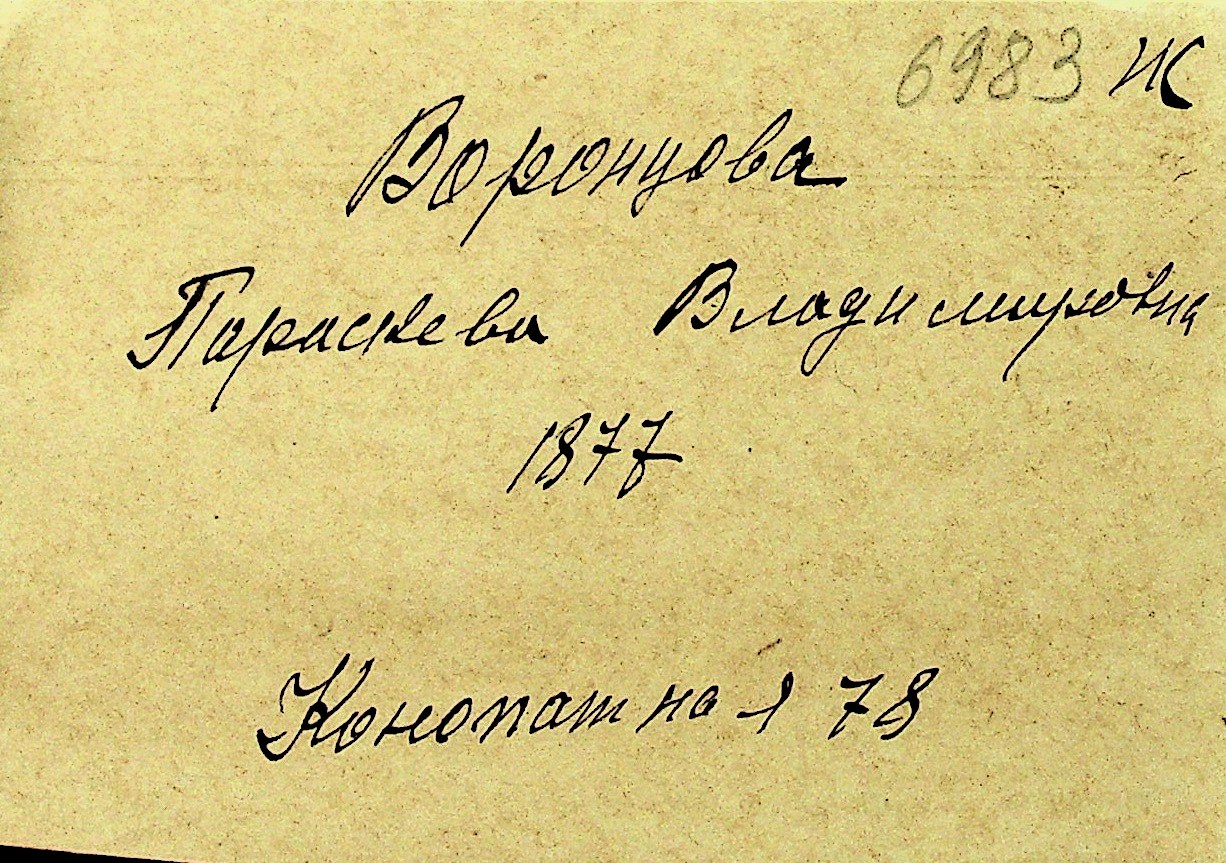 6983 Ж
Воронцова
Параскева Владимировна
1877
Конопатная 78